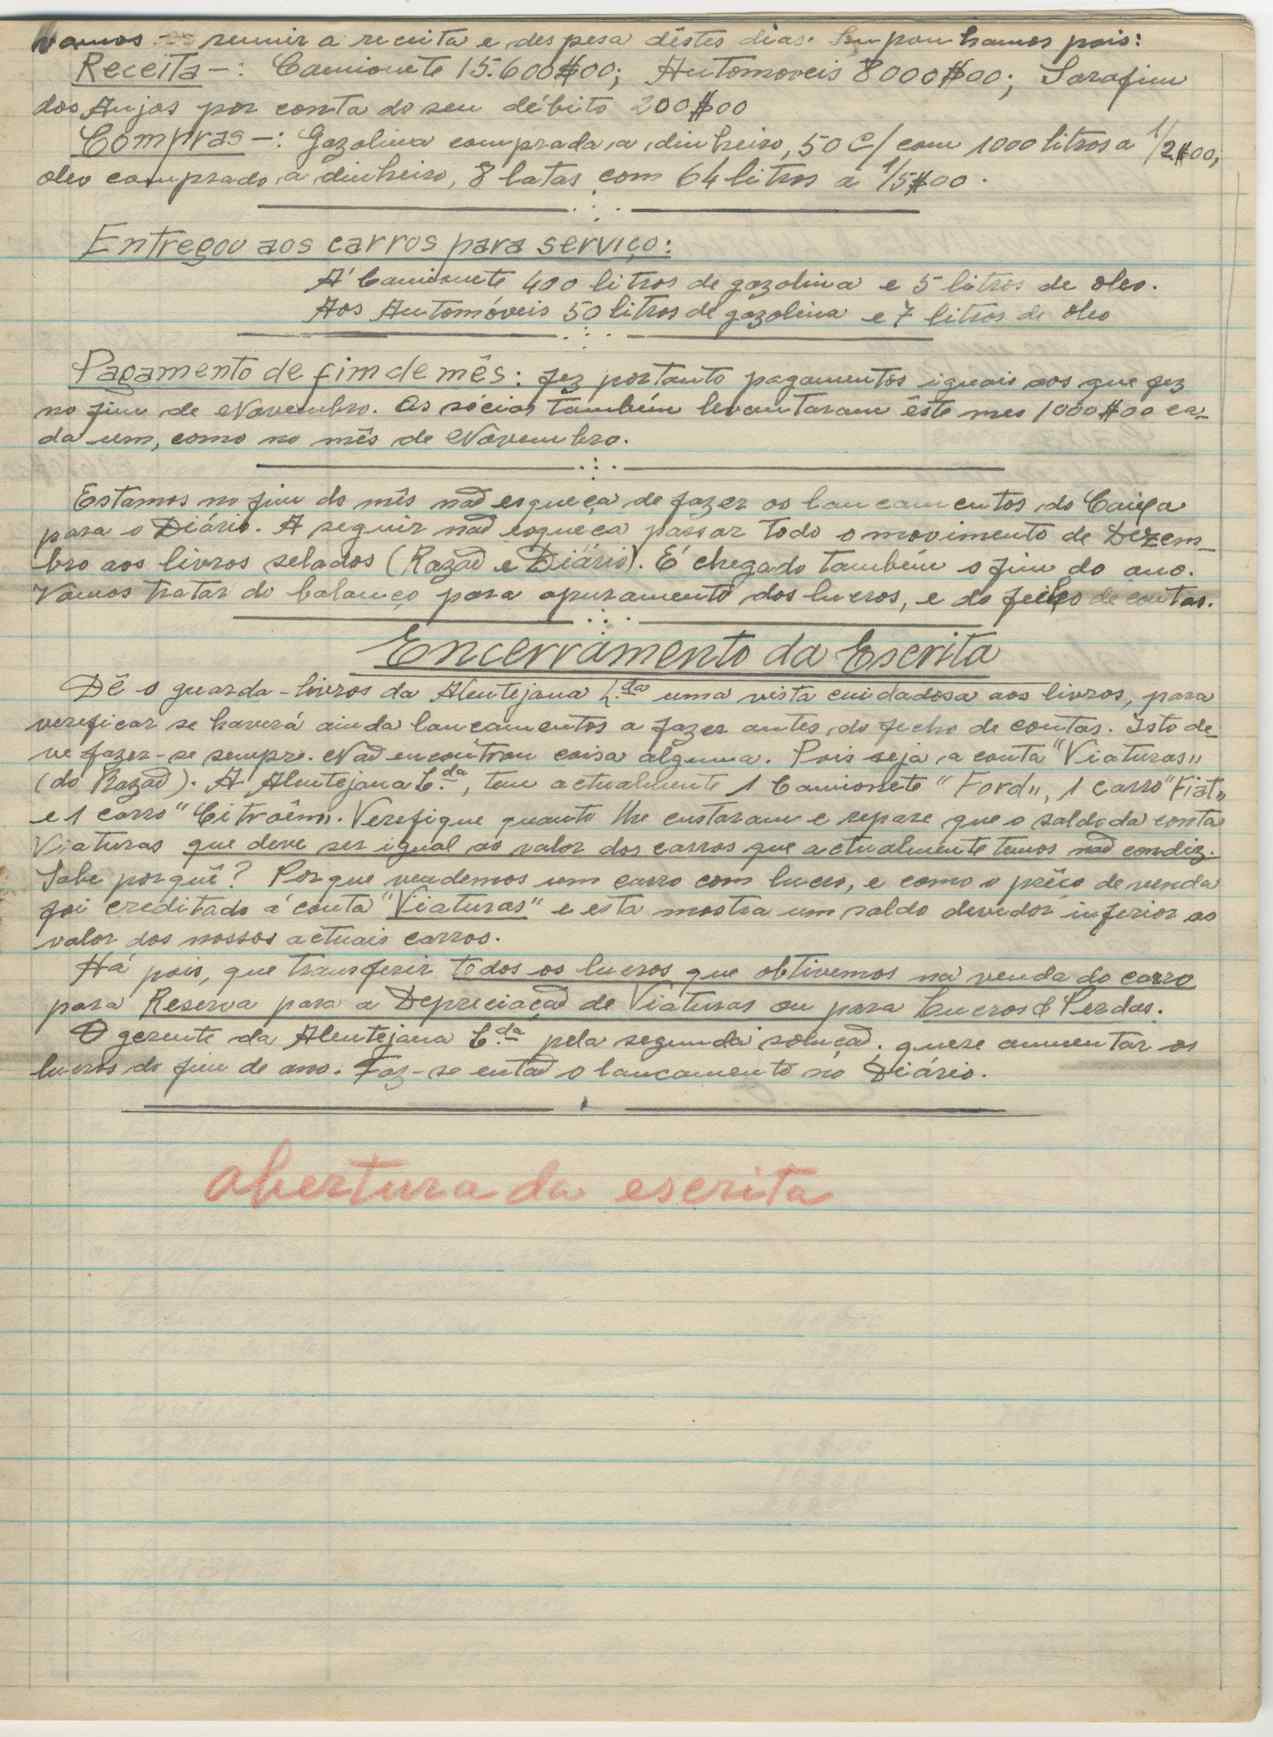 vamos reunir a receita e despesa dêstes dias. Suponhamos pois:
Receita-: Camionete 15.600$00; Automoveis 8000$00; Sarafim
dos Anjos por conta do seu débito 200$00
Compras-: Gazolina comprada a dinheiro, 50 C/ com 1000 litros a 1/2$00;
oleo comprado a dinheiro, 8 latas com 64 litros a 1/5$00.
Entregou aos carros para serviço:
Á Camionete 400 litros de gazolina e 5 litros de oleo.
Aos Automóveis 50 litros de gazolina e 7 litros de oleo
Pagamento de fim de mês: fez portanto pagamentos iguais aos que fez
no fim de Novembro. Os sócios também levantaram êste mes 1000$00 ca-
da um, como no mês de Novembro.
Estamos no fim do mês não esqueça de fazer os lancamentos do Caixa
para o Diário. A seguir não esqueça passar todo o movimento de Dezem-
bro aos livros selados (Razão e Diário). É chegado também o fim do ano.
Vamos tratar do balanço para apuramento dos lucros, e do fecho de contas.
Encerramento da Escrita
Dê o guarda-livros da Alentejana L.da uma vista cuidadosa aos livros, para
verificar se haverá ainda lancamentos a fazer antes do fecho de contas. Isto de-
ve fazer-se sempre. Não encontrou coisa alguma. Pois seja a conta "Viaturas"
(do Razão). A Alentejana L.da, tem actualmente 1 Camionete "Ford", 1 carro "Fiat"
e 1 carro "Citroêm". Verefique quanto lhe custaram e repare que o saldo da conta
Viaturas que deve ser igual ao valor dos carros que actualmente temos não condiz.
Sabe porquê? Porque vendemos um carro com lucro, e como o prêco de venda
foi creditado á conta "Viaturas" e esta mostra um saldo devedor inferior ao
valor dos nossos actuais carros.
Há pois, que transferir todos os lucros que obtivemos na venda do carro
para Reserva para a Depreciação de Viaturas ou para Lucros & Perdas.
O gerente da Alentejana L.da pela segunda solução. quere aumentar os
lucros do fim de ano. Faz-se então o lancamento no Diário.
abertura da escrita